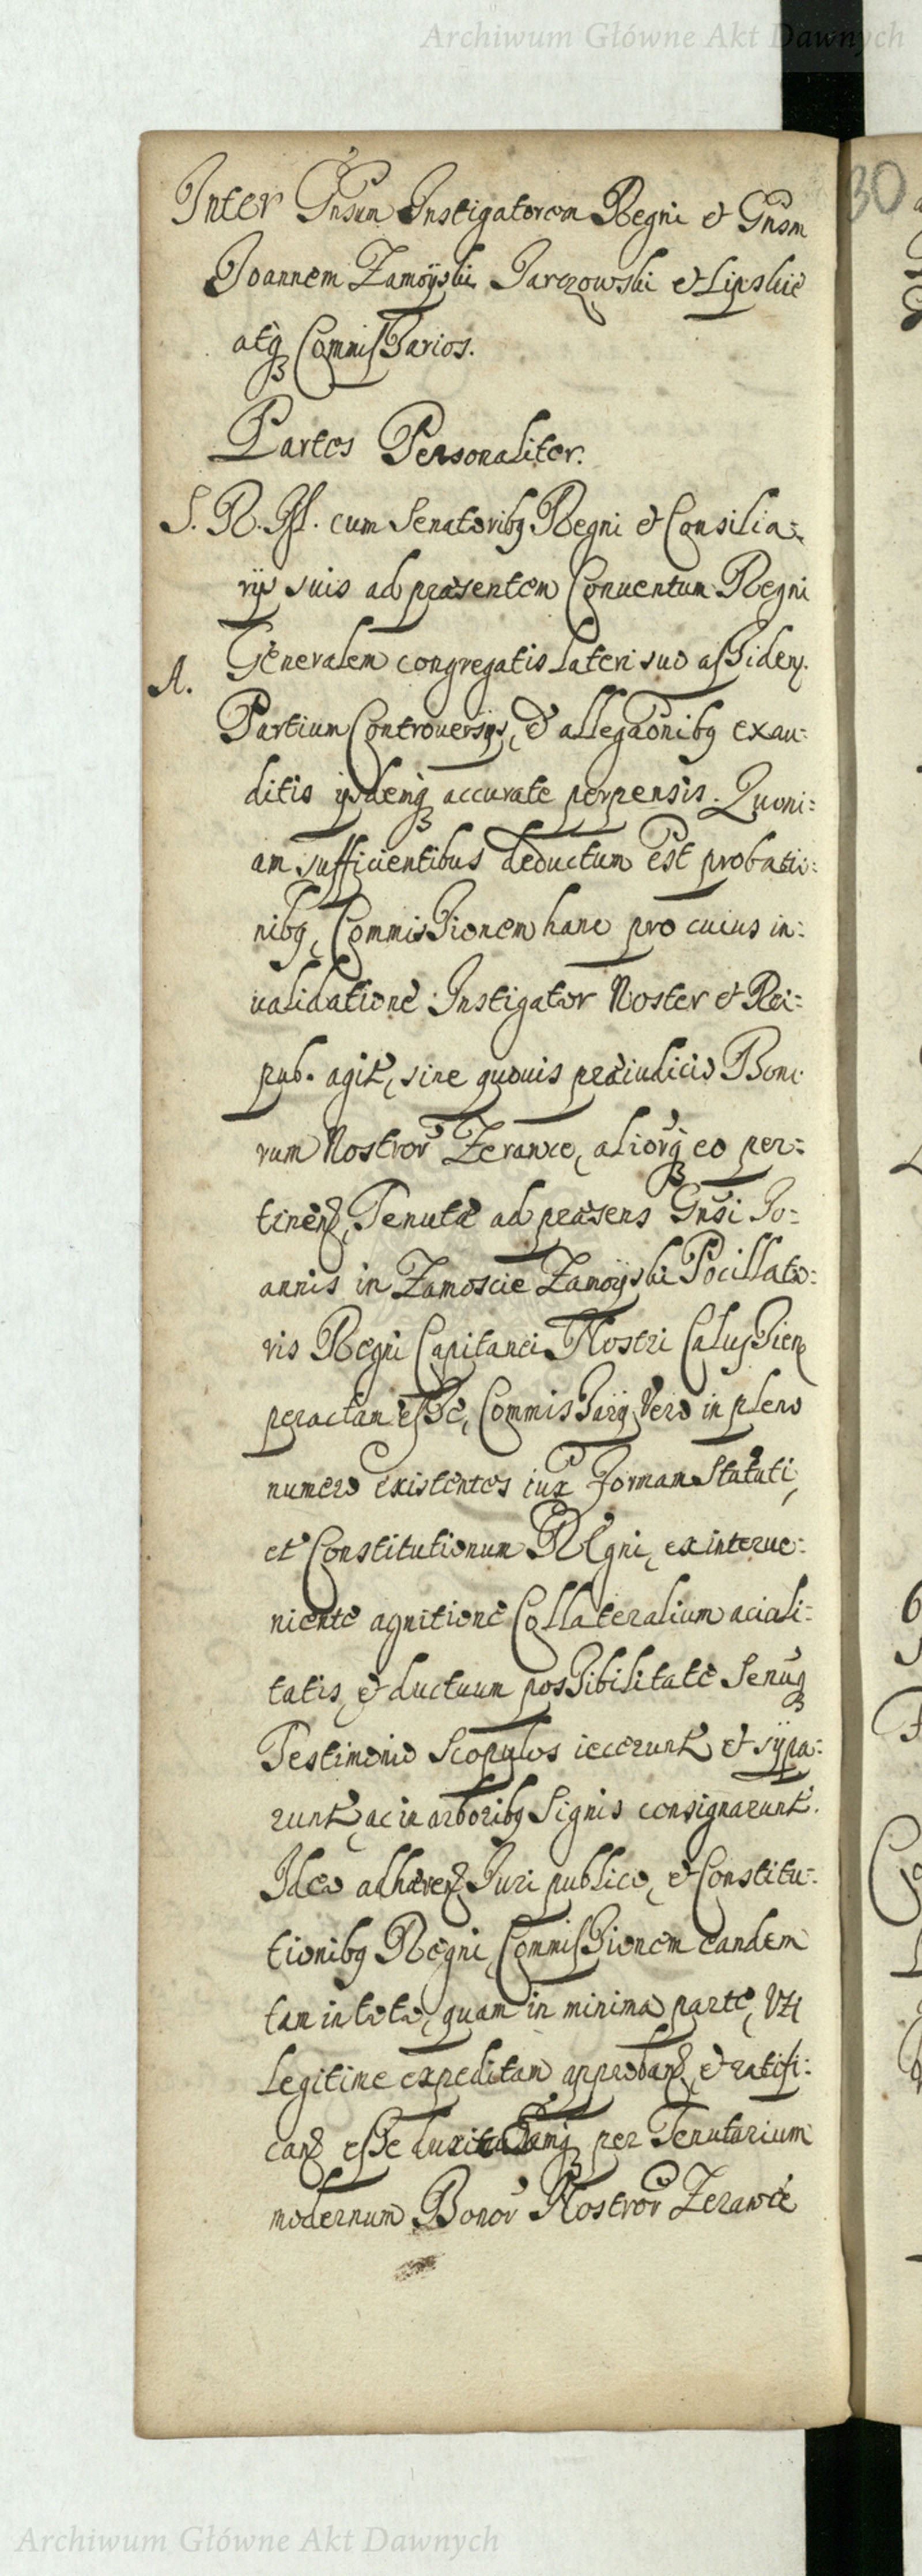 Archiwum Główne Akt Dawnych
30
Inter Gnsum Instigatorem Regni et Gnsm
Joannem Zamoÿski Jarczowski et Lipskie
atq Commissarios.
Partes Personaliter.
S. R. Mt. cum Senatoribq Regni et Consilia:
rijs suis ad præsentem Conventum Regni
Generalem congregatis Lateri suo assiden.
A.
Partium Controversijs, et allegaonibq exau:
ditis ijsdemq accurate perpensis. Quoni:
am sufficientibus deductum est probatio:
nibq, Commissionem hanc pro cuius in:
validatione Instigator Noster et Rei:
pub. agit, sine quovis præiudicio Bono
rum Nostror Zeravce, aliorq eo per:
tinen, Tenutæ ad præsens Gnsi Jo:
annis in Zamoscie Zamoÿski Pocillato:
ris Regni Capitanei Nostri Calussien
peractam esse, Commissarij vero in pleno
numero existentes iux formam Statuti,
et Constitutionum Regni, ex interve:
niente agnitione Collateralium
tatis, et ductuum possibilitate Senuq
Testimonio Scopulos iecerunt et sÿpa:
runt, ac in arboribq Signis consignarunt.
Ideo adhæren Juri publico, et Constitu:
tionibq Regni, Commissionem eandem
tam in toto, quam in minima parte, Uti
Legitime expeditam approban, et ratifi:
can esse duxit per Tenutarium
modernum Bonor Nostror Zerawce
Archiwum Główne Akt Dawnych